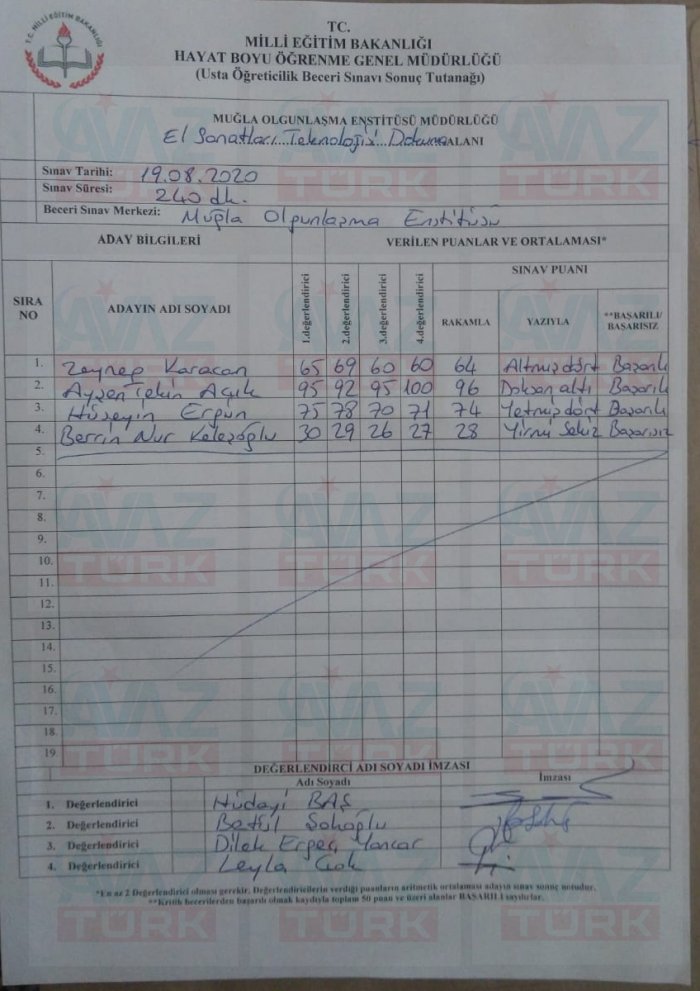 T.C. MİLLİ EĞİTİM BAKANLIĞI
TC.
MİLLİ EĞİTİM BAKANLIĞI
HAYAT BOYU ÖĞRENME GENEL MÜDÜRLÜĞÜ
(Usta Öğreticilik Beceri Sınavı Sonuç Tutanağı)
MUĞLA OLGUNLAŞMA ENSTİTÜSÜ MÜDÜRLÜĞÜ
El Sanatları Teknolojisi Dokuma ALANI
Sınav Tarihi: 19.08.2020
Sınav Süresi: 240 dk.
Beceri Sınav Merkezi: Muğla Olgunlaşma Enstitüsü
ADAY BİLGİLERİ VERİLEN PUANLAR VE ORTALAMASI*
SIRA NO ADAYIN ADI SOYADI 1.değerlendirici 2.değerlendirici 3.değerlendirici 4.değerlendirici SINAV PUANI
RAKAMLA YAZIYLA **BAŞARILI/ BAŞARISIZ
1. Zeynep Karacan 65 69 60 60 64 Altmışdört Başarılı
2. Ayşen Tekin Açık 95 92 95 100 96 Doksan altı Başarılı
3. Hüseyin Ergün 75 78 70 71 74 Yetmişdört Başarılı
4. Berrin Nur Keleşoğlu 30 29 26 27 28 Yirmi Sekiz Başarısız
5.
6.
7.
8.
9.
10.
11.
12.
13.
14.
15.
16.
17.
18.
19
DEĞERLENDİRCİ ADI SOYADI İMZASI
Adı Soyadı İmzası
1. Değerlendirici Hüdayi BAŞ
2. Değerlendirici Betül
3. Değerlendirici Dilek Ergeç
4. Değerlendirici Leyla
*En az 2 Değerlendirici olması gerekir. Değerlendiricilerin verdiği puanların aritmetik ortalaması adayın sınav sonuç notudur.
**Kritik becerilerden başarılı olmak kaydıyla toplam 50 puan ve üzeri alanlar BAŞARILI sayılırlar.
AVAZ TÜRK